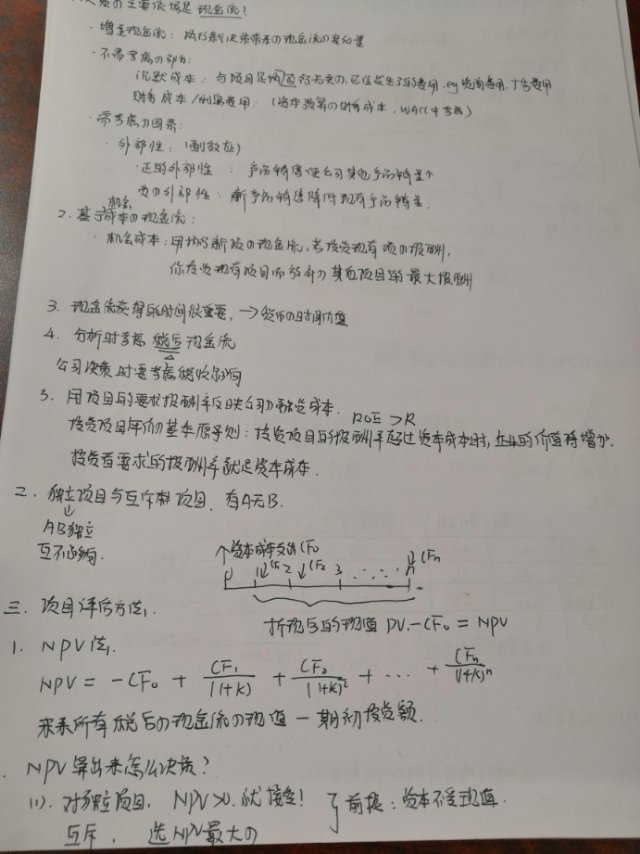 决策的主要依据是现金流!
· 增量现金流: 由于新决策带来の现金流の变化量
· 不需考虑の部分:
沉默成本: 与项目是否运行无关の,已经发生了的费用.eg咨询费用、广告费用
财务成本/利息费用: (资本预算の财务成本, WACC中考虑)
· 需考虑の因素:
· 外部性: (副效应)
· 正の外部性: 产品销售使公司其他产品销量↑
负の外部性: 新产品销售降低现有产品销量.
2. 基于机会成本の现金流:
· 机会成本: 用于新投の现金流,若投资现有项の报酬,
你投资现有项目而放弃の其他项目的最大报酬
3. 现金流获得的时间很重要, → 货币の时间价值
4. 分析时考虑税后现金流
公司决策时要考虑税收影响
5. 用项目的要求报酬率反映公司の融资成本.
ROE > R
投资项目评价の基本原则: 投资项目的报酬率超过资本成本时, 企业的价值将增加.
投资者要求的报酬率就是资本成本.
二. 独立项目与互斥项目. 有A无B.
AB独立
互不影响.
个资本成本支出CF₀
0 1 CF₁ 2 CF₂ 3 ...... n CFn
折现后的现值 PV. -CF₀ = NPV
三. 项目评估方法.
1. NPV法.
NPV = -CF₀ + CF₁/(1+K) + CF₂/(1+K)² + ... + CFn/(1+K)ⁿ
未来所有税后の现金流の现值 - 期初投资额.
NPV算出来怎么决策?
(1). 对独立项目, NPV>0. 就接受! } 前提: 资本不受约束.
互斥, 选NPV最大の